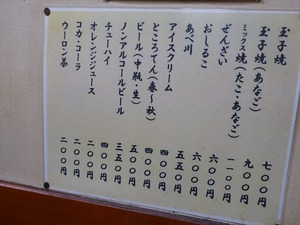 玉子焼 七〇〇円
玉子焼(あなご) 九〇〇円
ミックス焼(たこ・あなご) 一一〇〇円
ぜんざい 六〇〇円
おしるこ 六〇〇円
あべ川 五五〇円
アイスクリーム 四〇〇円
ところてん(春～秋) 四〇〇円
ビール(中瓶・生) 五〇〇円
ノンアルコールビール 三五〇円
チューハイ 四〇〇円
オレンジジュース 二〇〇円
コカ・コーラ 二〇〇円
ウーロン茶 二〇〇円